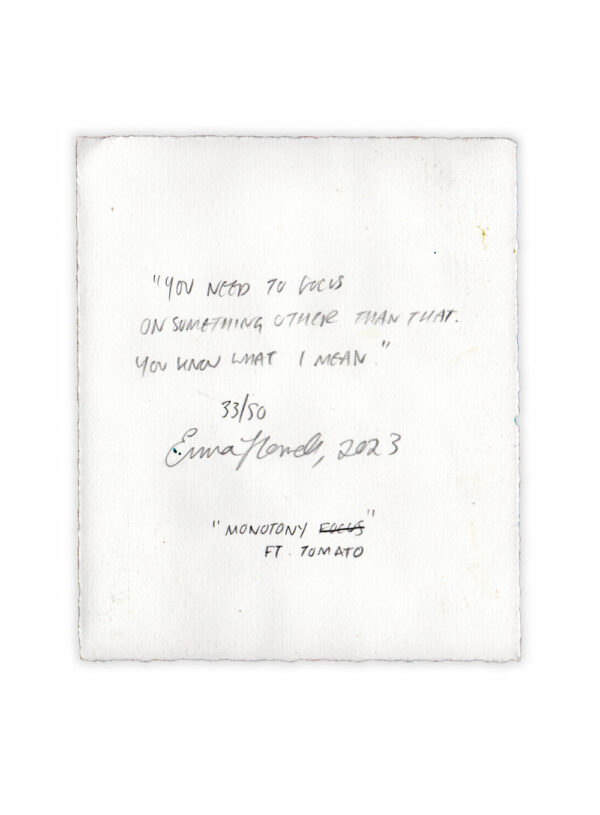 "YOU NEED TO FOCUS
ON SOMETHING OTHER THAN THAT.
YOU KNOW WHAT I MEAN."
33/50
Emma Howell, 2023
"MONOTONY FOCUS"
FT. TOMATO